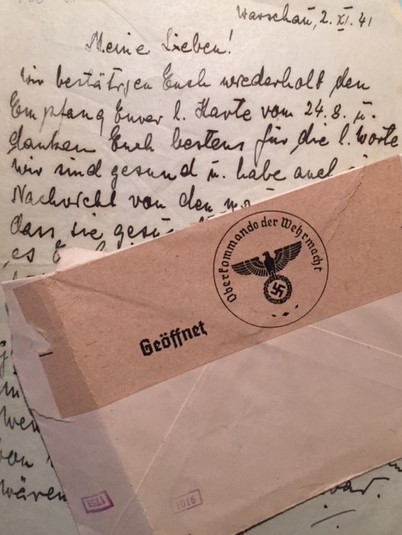 Warschau, 2. XI. 41
Meine Lieben!
Wir bestätigen Euch wiederholt den
Empfang Eurer l. Karte vom 24.8. u.
danken Euch bestens für die l. Worte
wir sind gesund u. habe auch
Nachricht von den
dass sie
es
Oberkommando der Wehrmacht
Geöffnet
von
wären
1751
1016